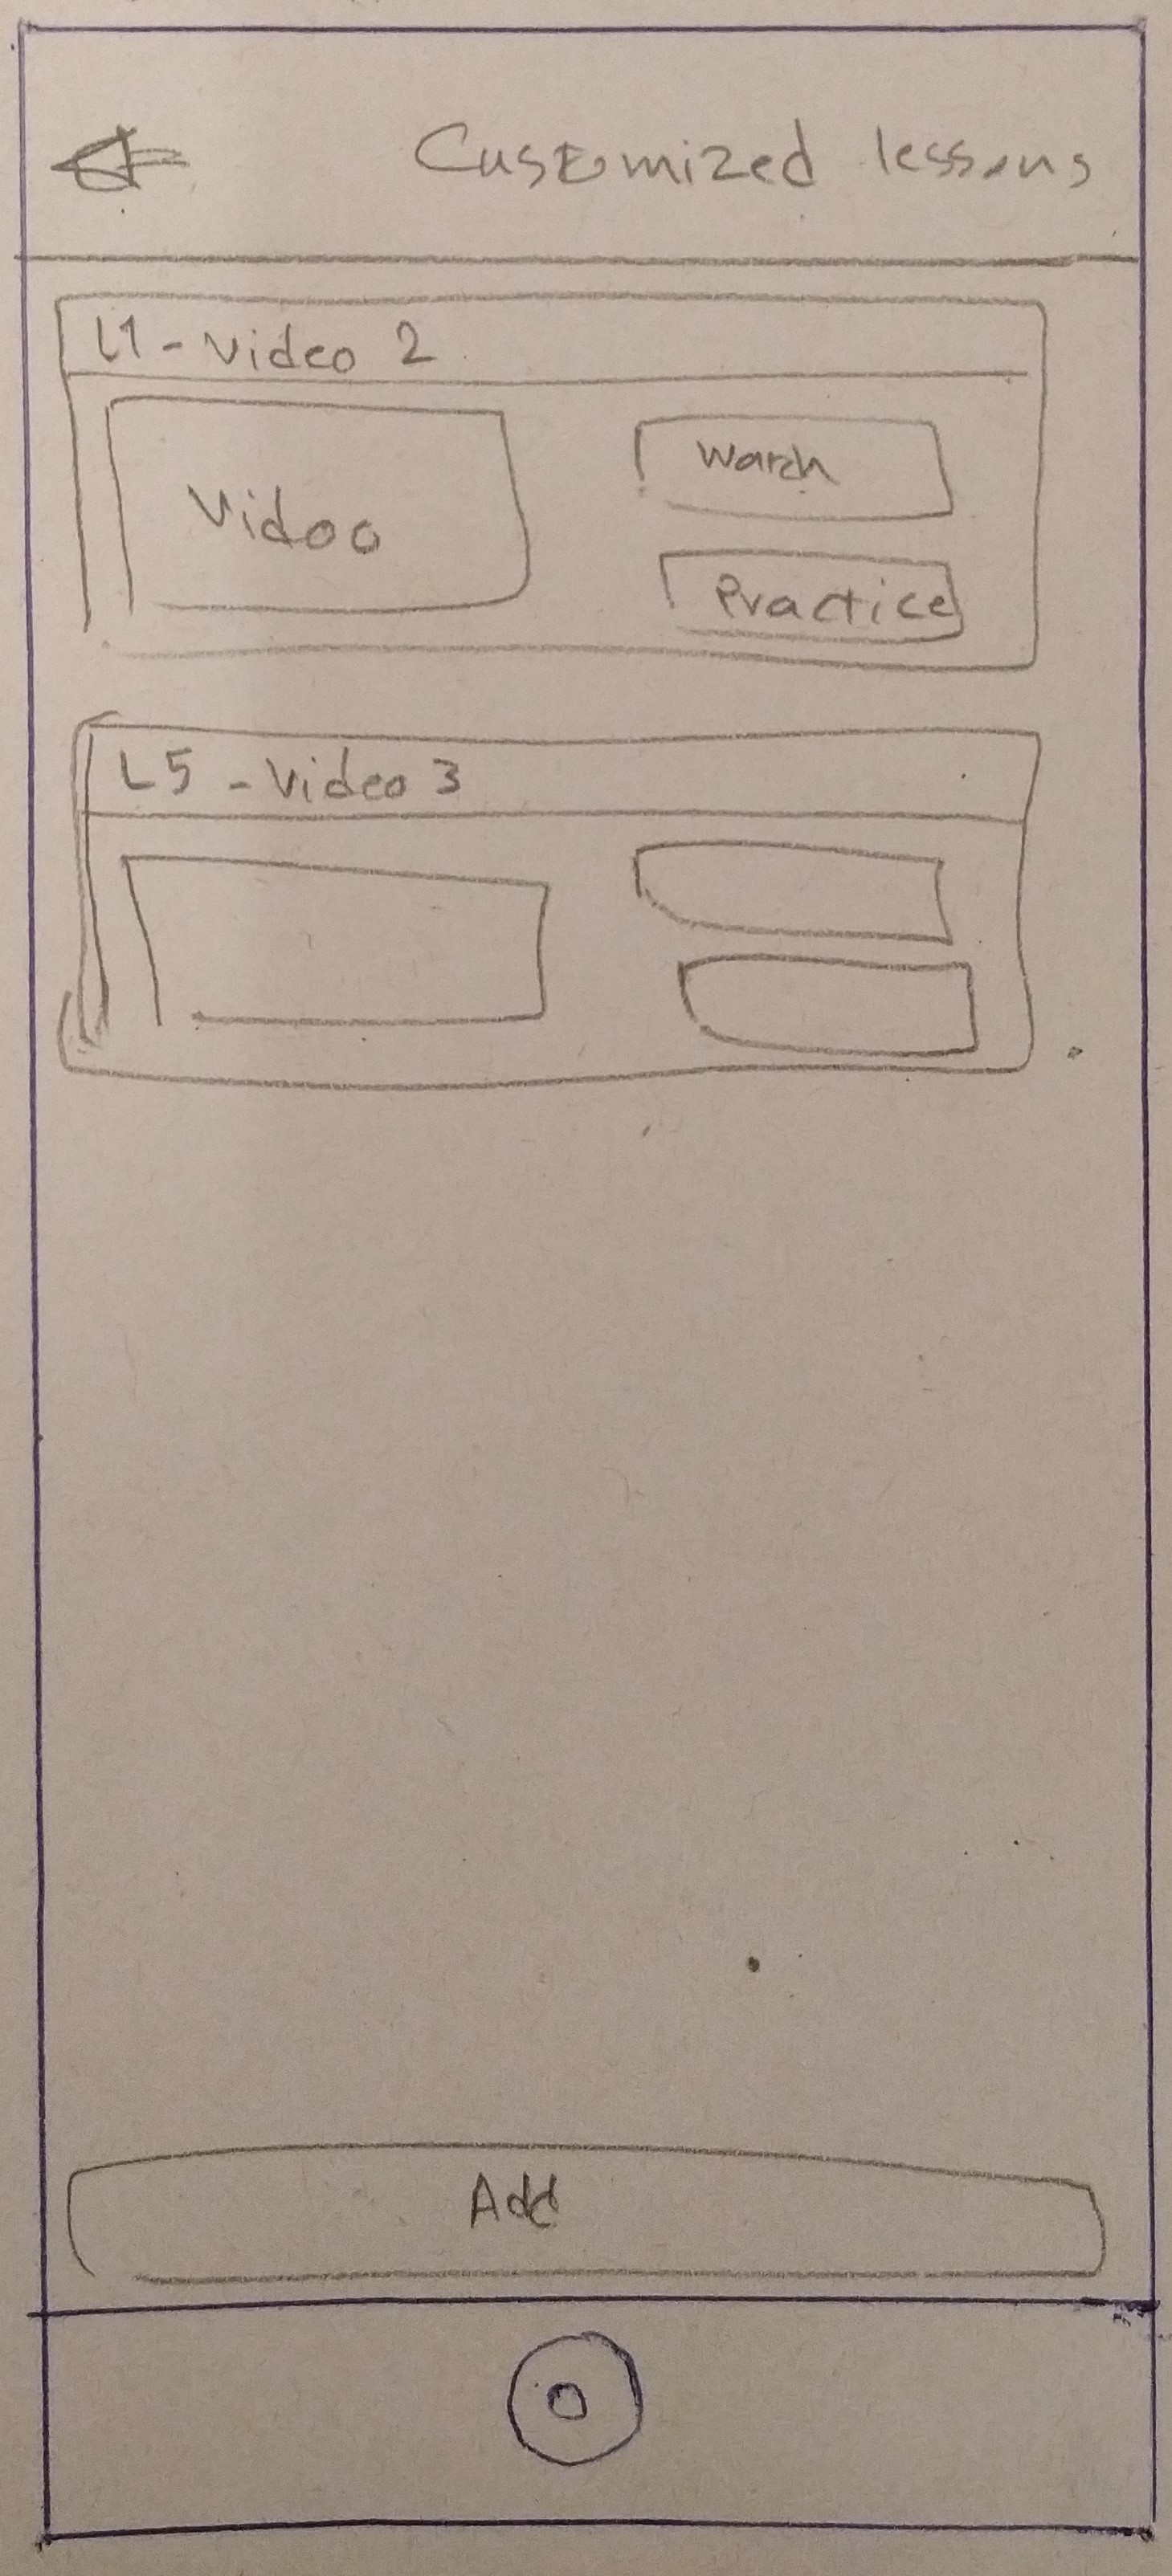 Customized lessons
L1 - Video 2
Video
Watch
Practice
L5 - Video 3
Add